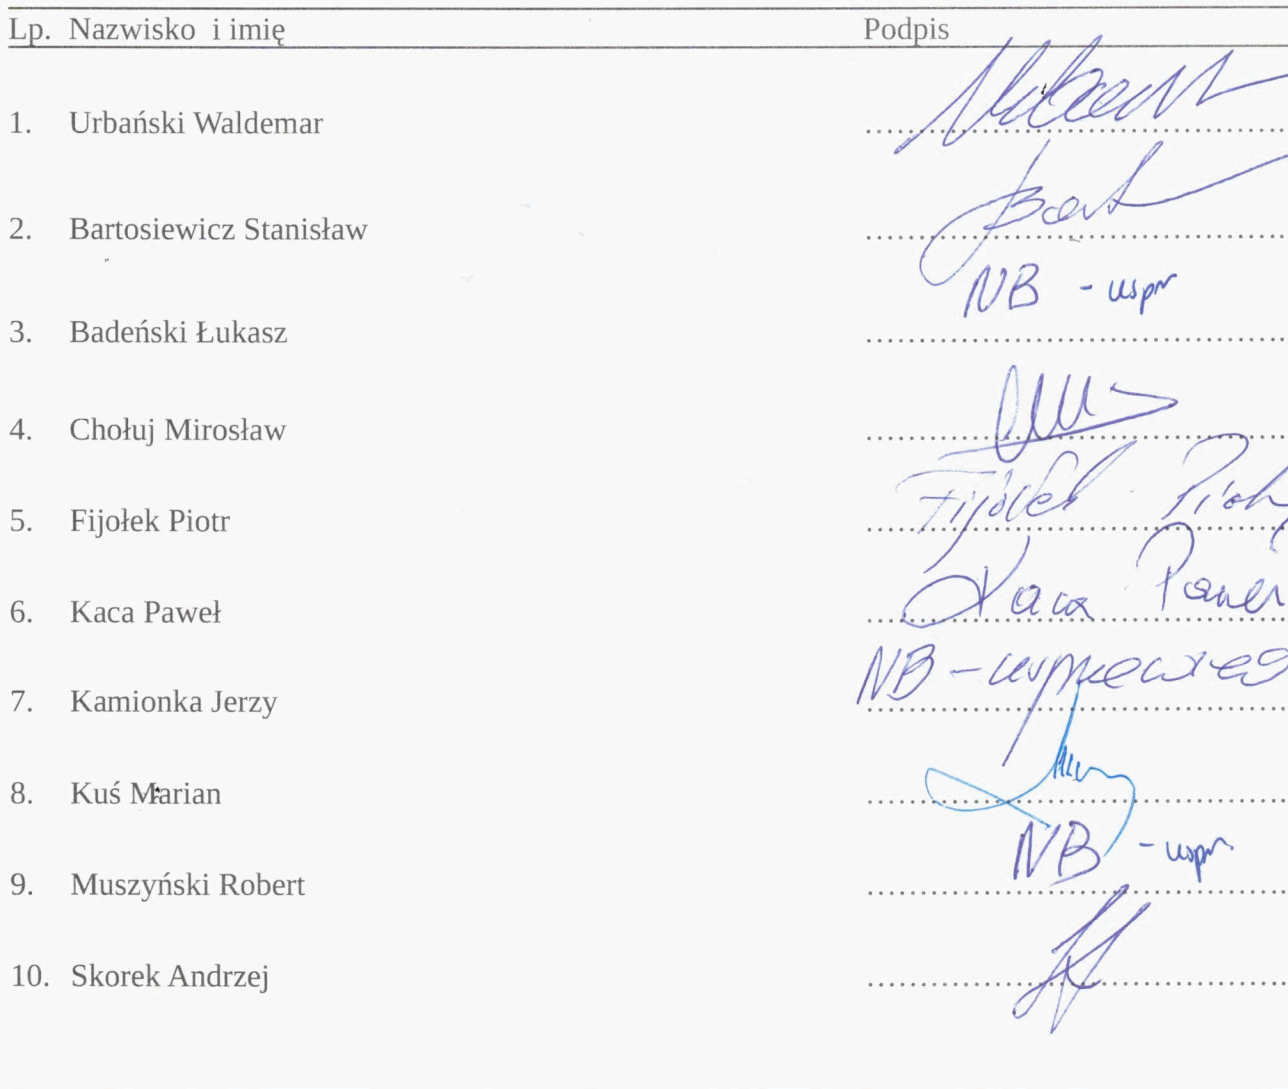 Lp. Nazwisko i imię Podpis
1. Urbański Waldemar
2. Bartosiewicz Stanisław Bart
3. Badeński Łukasz NB - uspr
4. Chołuj Mirosław
5. Fijołek Piotr Fijołek Piotr
6. Kaca Paweł Kaca Paweł
7. Kamionka Jerzy NB -
8. Kuś Marian
9. Muszyński Robert NB - uspr.
10. Skorek Andrzej